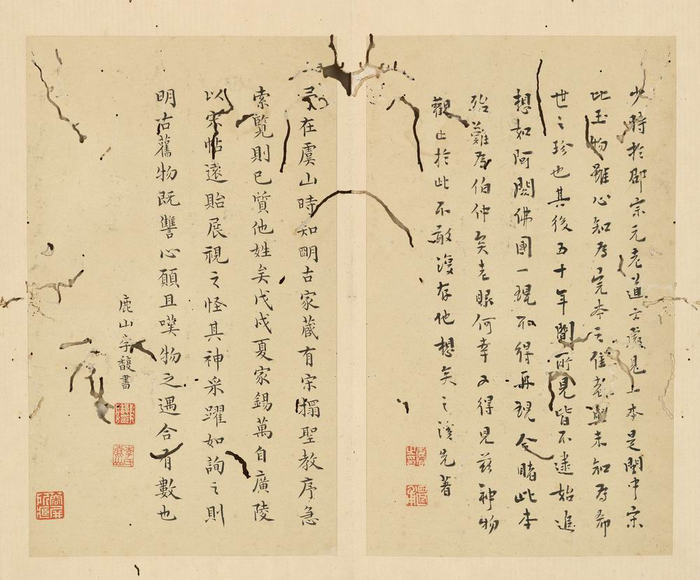 少時於邵宗元老道士處見上本是關中宋
此玉物雖心知為完本之佳者未知為希
世之珍也其後五十年間所見皆不逮始追
想如阿閦佛國一現不得再現今睹此本
殆難為伯仲矣老眼何幸又得見茲神物
觀止於此不敢復存他想矣之溥先著
在虞山時知明古家藏有宋搨聖教序急
索覽則已質他姓矣戊戌夏家錫萬自廣陵
以宋帖遠貽展視之怪其神采躍如詢之則
明古舊物既讐心願且嘆物之遇合有數也
鹿山李馥書